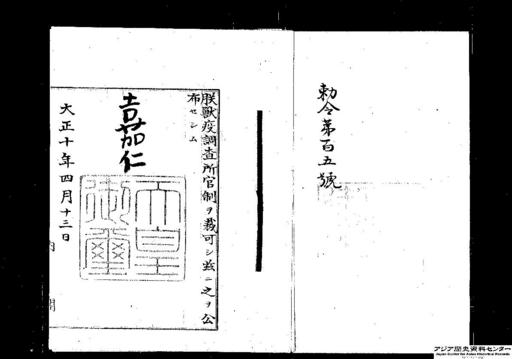 勅令第百五號
朕獸疫調査所官制ヲ裁可シ玆ニ之ヲ公
布セシム
嘉仁
天皇御璽
大正十年四月十三日
内閣
アジア歴史資料センター
Japan Center for Asian Historical Records